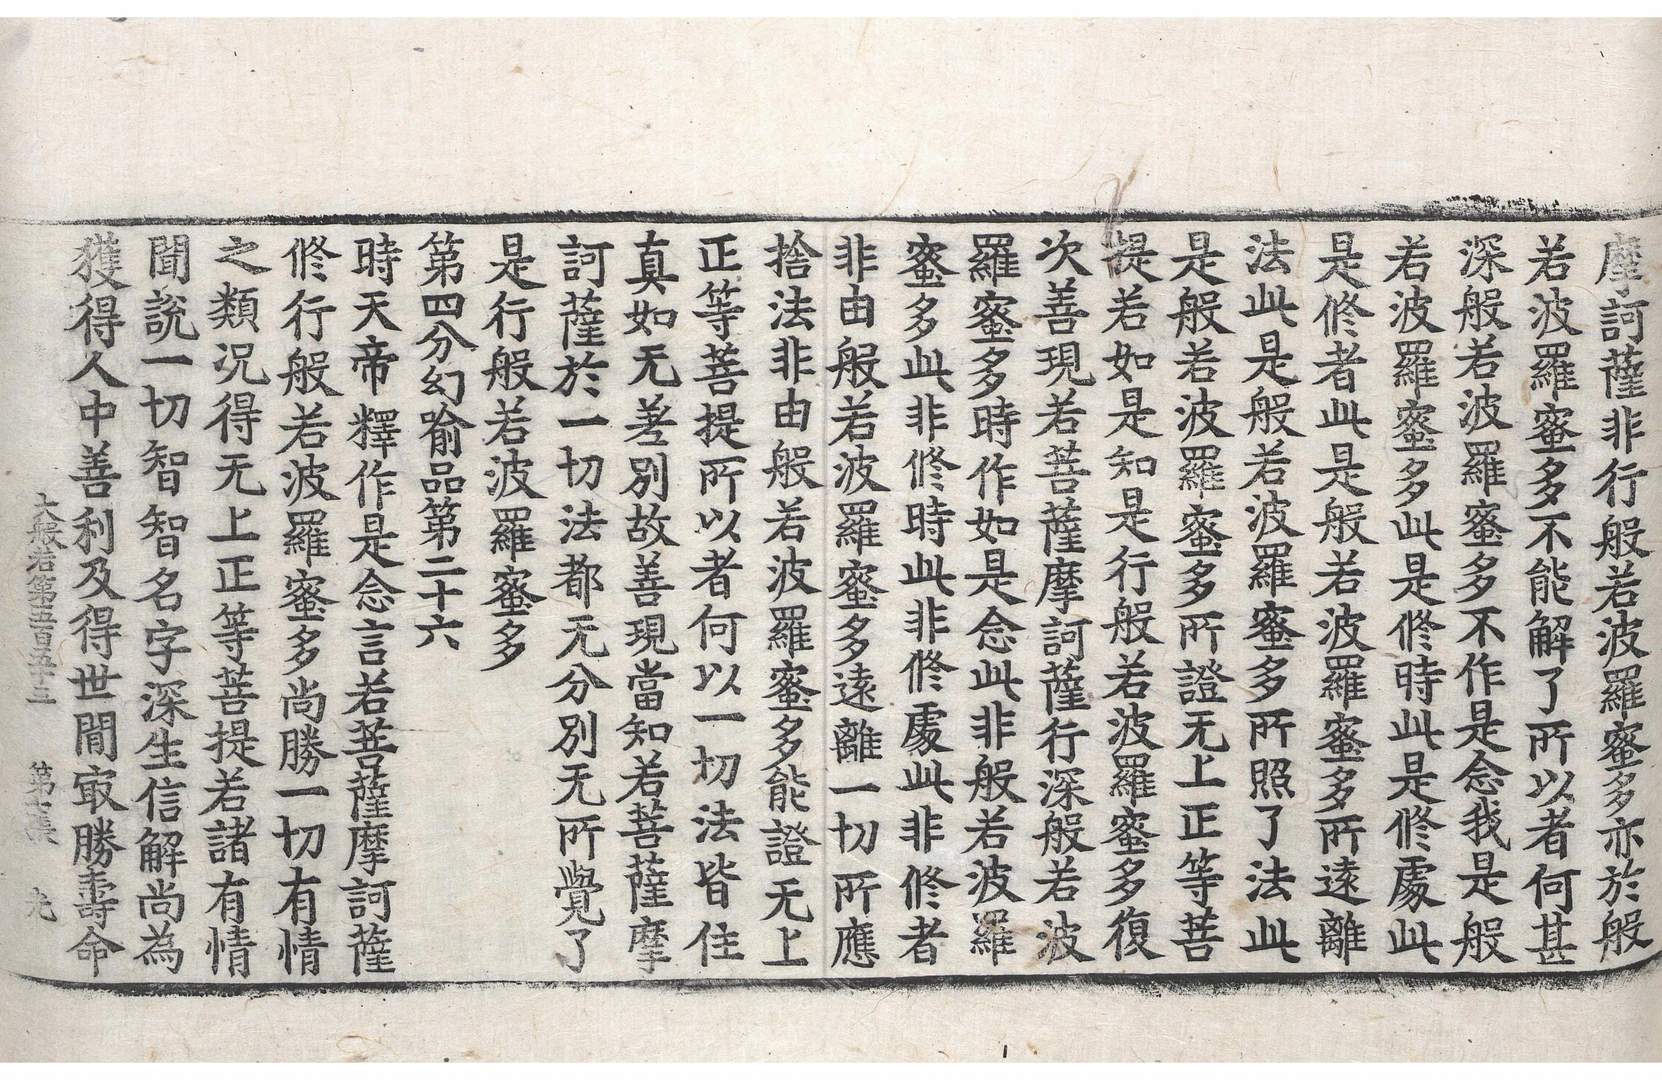 摩訶薩非行般若波羅蜜多亦於般
若波羅蜜多不能解了所以者何甚
深般若波羅蜜多不作是念我是般
若波羅蜜多此是修時此是修處此
是修者此是般若波羅蜜多所遠離
法此是般若波羅蜜多所照了法此
是般若波羅蜜多所證无上正等菩
提若如是知是行般若波羅蜜多復
次善現若菩薩摩訶薩行深般若波
羅蜜多時作如是念此非般若波羅
蜜多此非修時此非修處此非修者
非由般若波羅蜜多遠離一切所應
捨法非由般若波羅蜜多能證无上
正等菩提所以者何以一切法皆住
真如无差別故善現當知若菩薩摩
訶薩於一切法都无分別无所覺了
是行般若波羅蜜多
第四分幻喻品第二十六
時天帝釋作是念言若菩薩摩訶薩
修行般若波羅蜜多尚勝一切有情
之類況得无上正等菩提若諸有情
聞說一切智智名字深生信解尚為
獲得人中善利及得世間㝡勝壽命
大般若第五百五十三 第十張 光